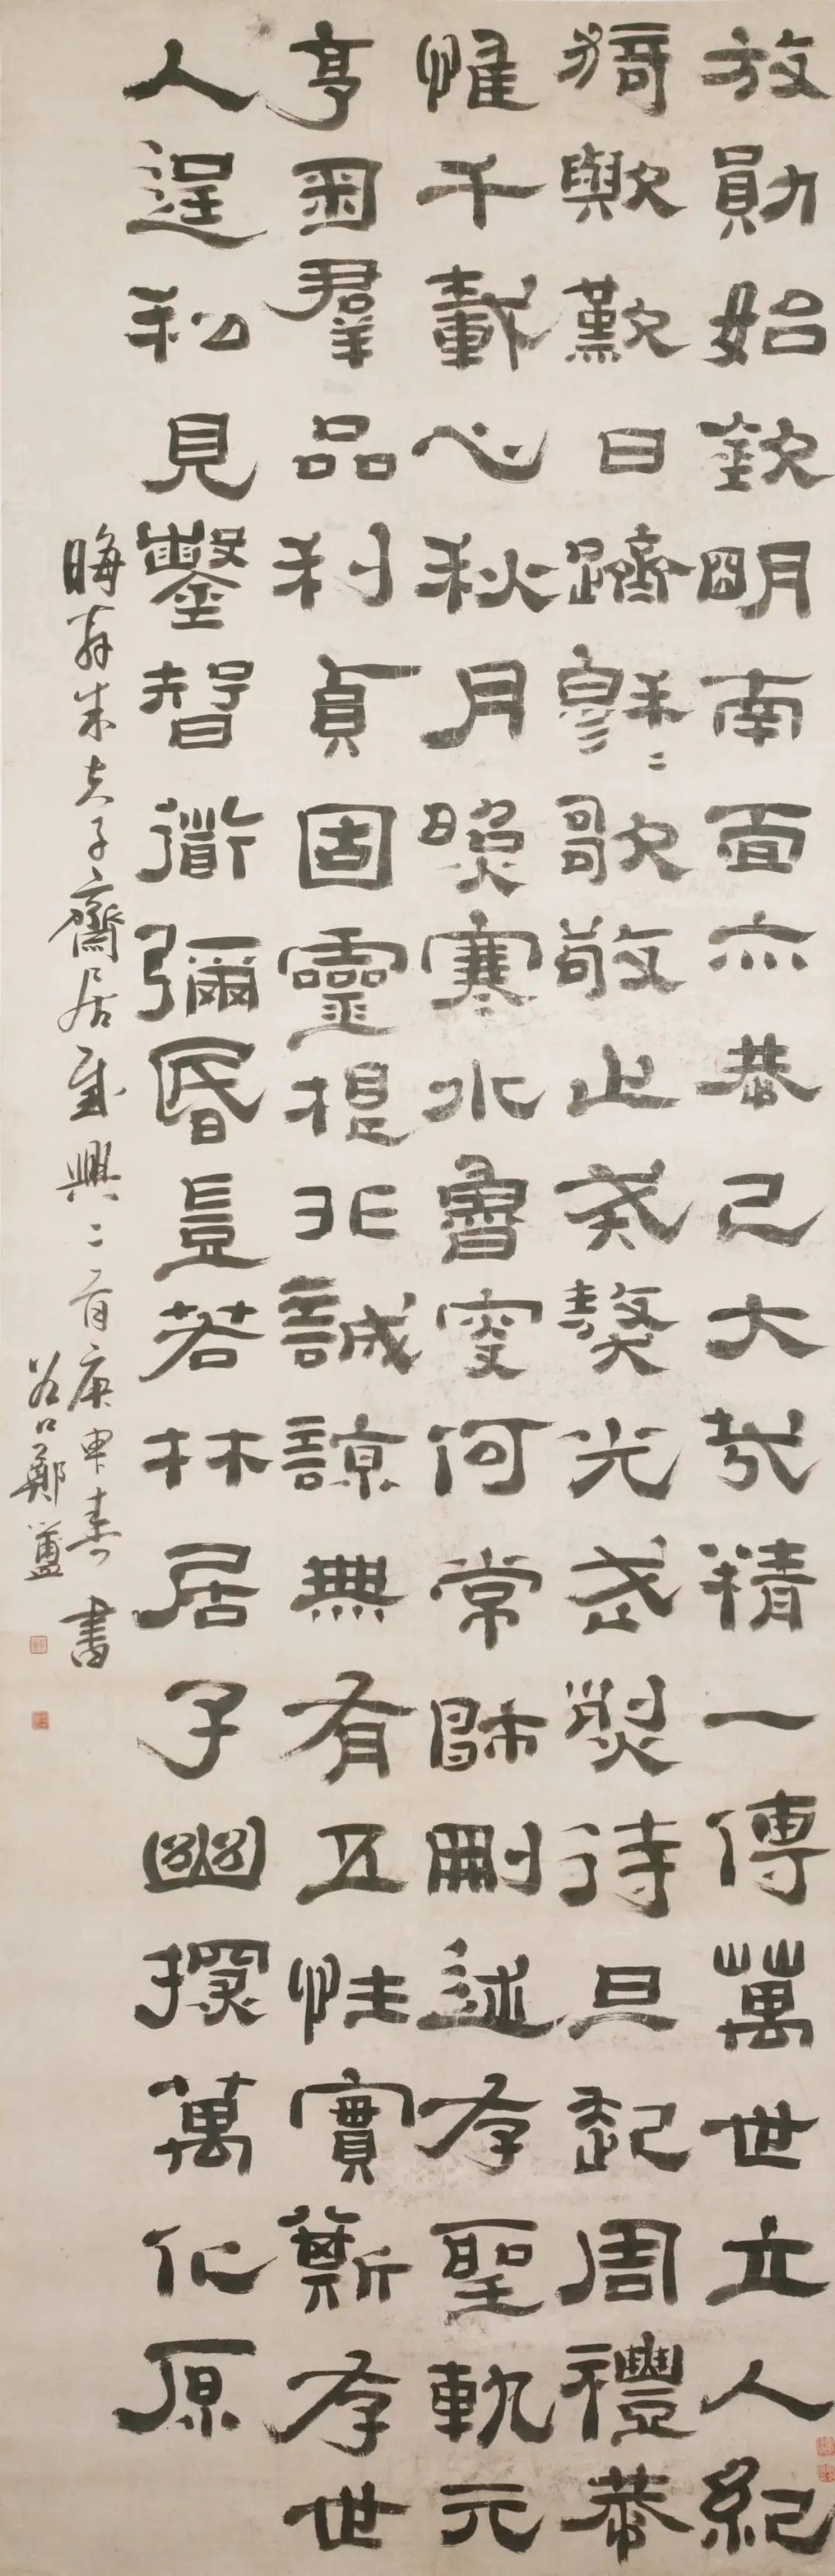 放勛始欽明南面亦恭己大哉精一傳萬世立人紀
猗歟歎日躋穆〻歌敬止戒獒光武烈待旦起周禮恭
惟千載心秋月照寒水魯叟何常師刪述存聖軌元
亨播群品利貞固靈根非誠諒無有五性實斯存世
人逞私見鑿智道彌昏豈若林居子幽探萬化原
晦菴朱夫子齋居感興二首庚申春書
谷口鄭簠